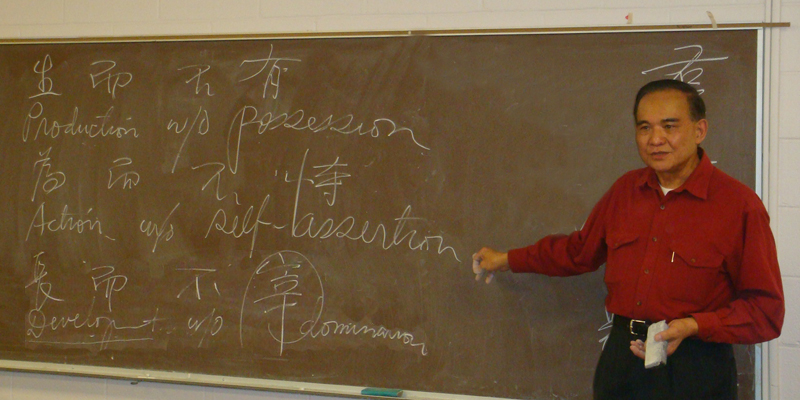 生而不有
Production w/o possession
為而不恃
Action w/o self-assertion
長而不宰
Development w/o domination